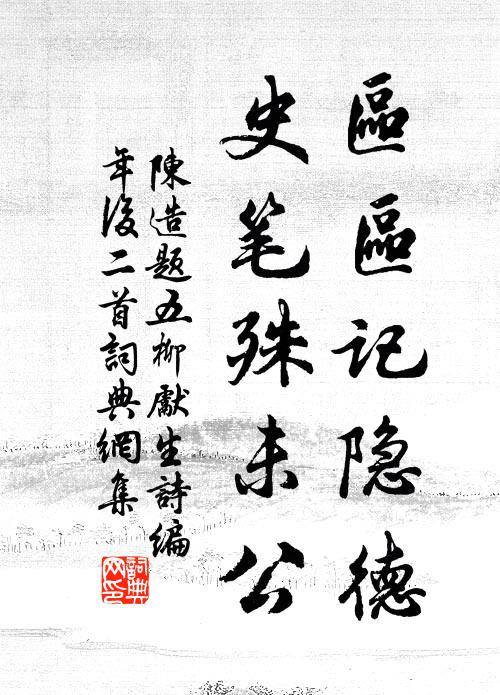 區區记隐德
史笔殊未公
陳造题五柳獻生詩編
年後二首詞典網集
詞典
网印